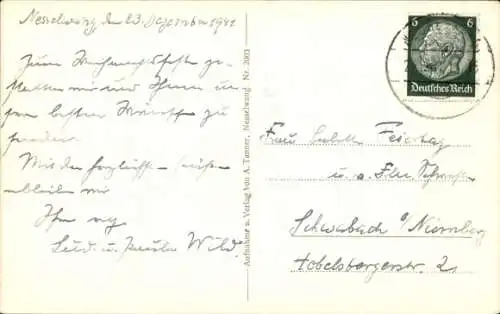 Nesselwang, den 23. Dezember 1941
Zum Weihnachtsfeste ge-
statten wir uns Ihnen un-
sere besten Wünsche zu
senden.
Mit den herzlichsten Grüßen
verbleiben wir
Ihre
Lud. u. Paula Wild.
Aufnahme u. Verlag von A. Tanner, Nesselwang Nr. 2003
6 6
Deutsches Reich
Frau Feiertag
u.
Schwabach b/Nürnberg
2